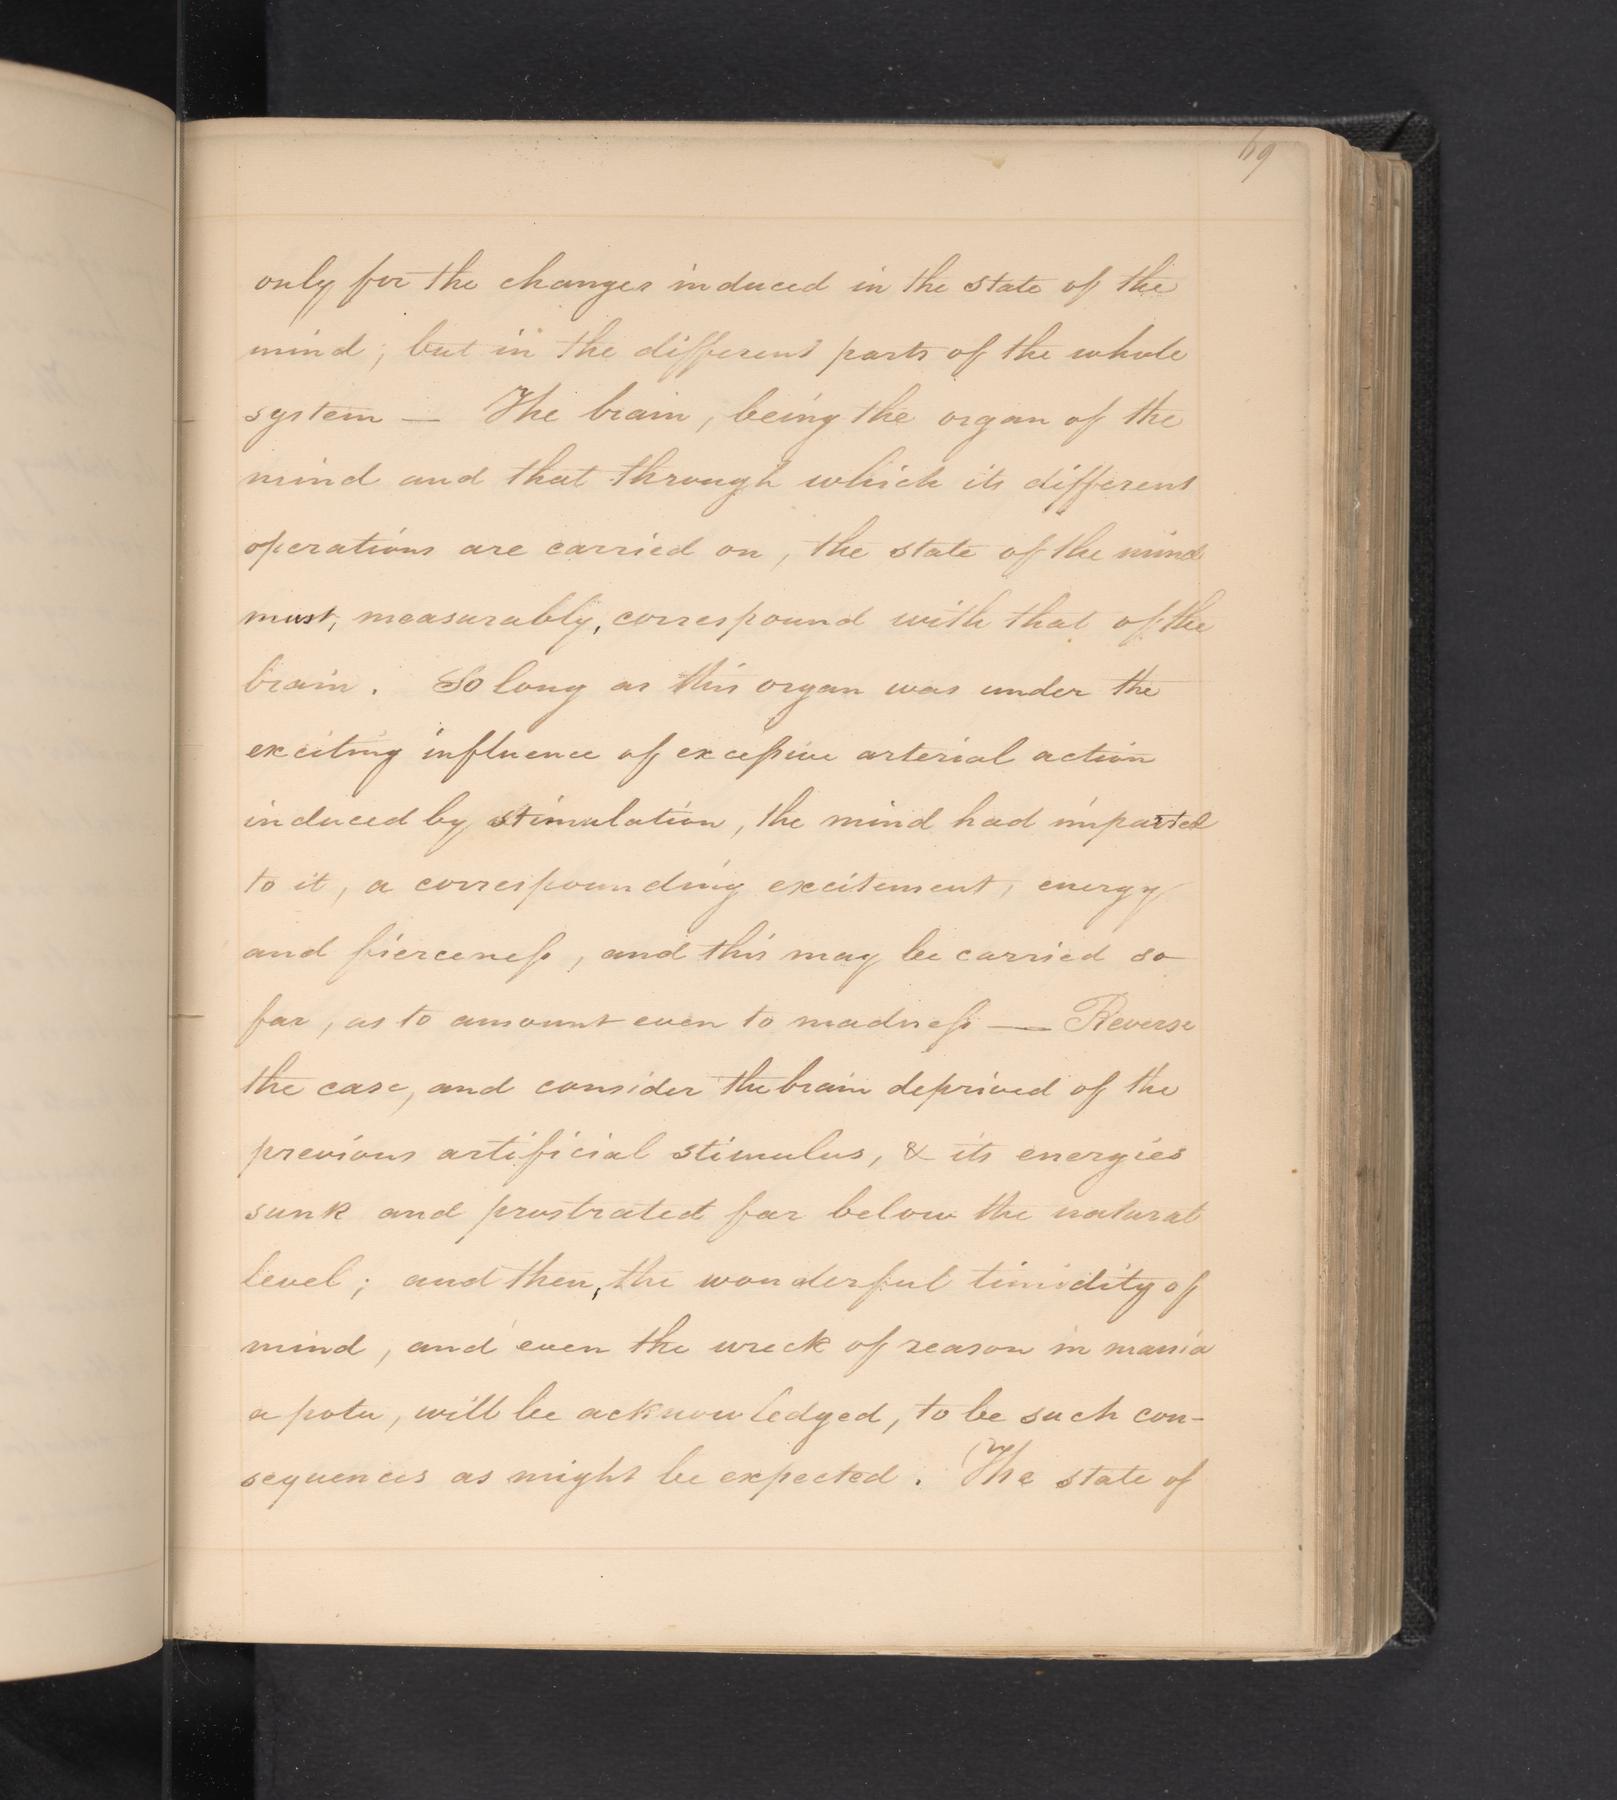 69
only for the changes induced in the state of the
mind; but in the different parts of the whole
system — The brain, being the organ of the
mind and that through which its different
operations are carried on, the state of the mind
must, measurably, correspound with that of the
brain. So long as this organ was under the
exciting influence of excessive arterial action
induced by stimulation, the mind had imparted
to it, a correspounding excitement, energy
and fierceness, and this may be carried so
far, as to amount even to madness — Reverse
the case, and consider the brain deprived of the
previous artificial stimulus, & its energies
sunk and prostrated far below the natural
level; and then, the wonderful timidity of
mind, and even the wreck of reason in mania
a potu, will be acknowledged, to be such con-
sequences as might be expected. The state of